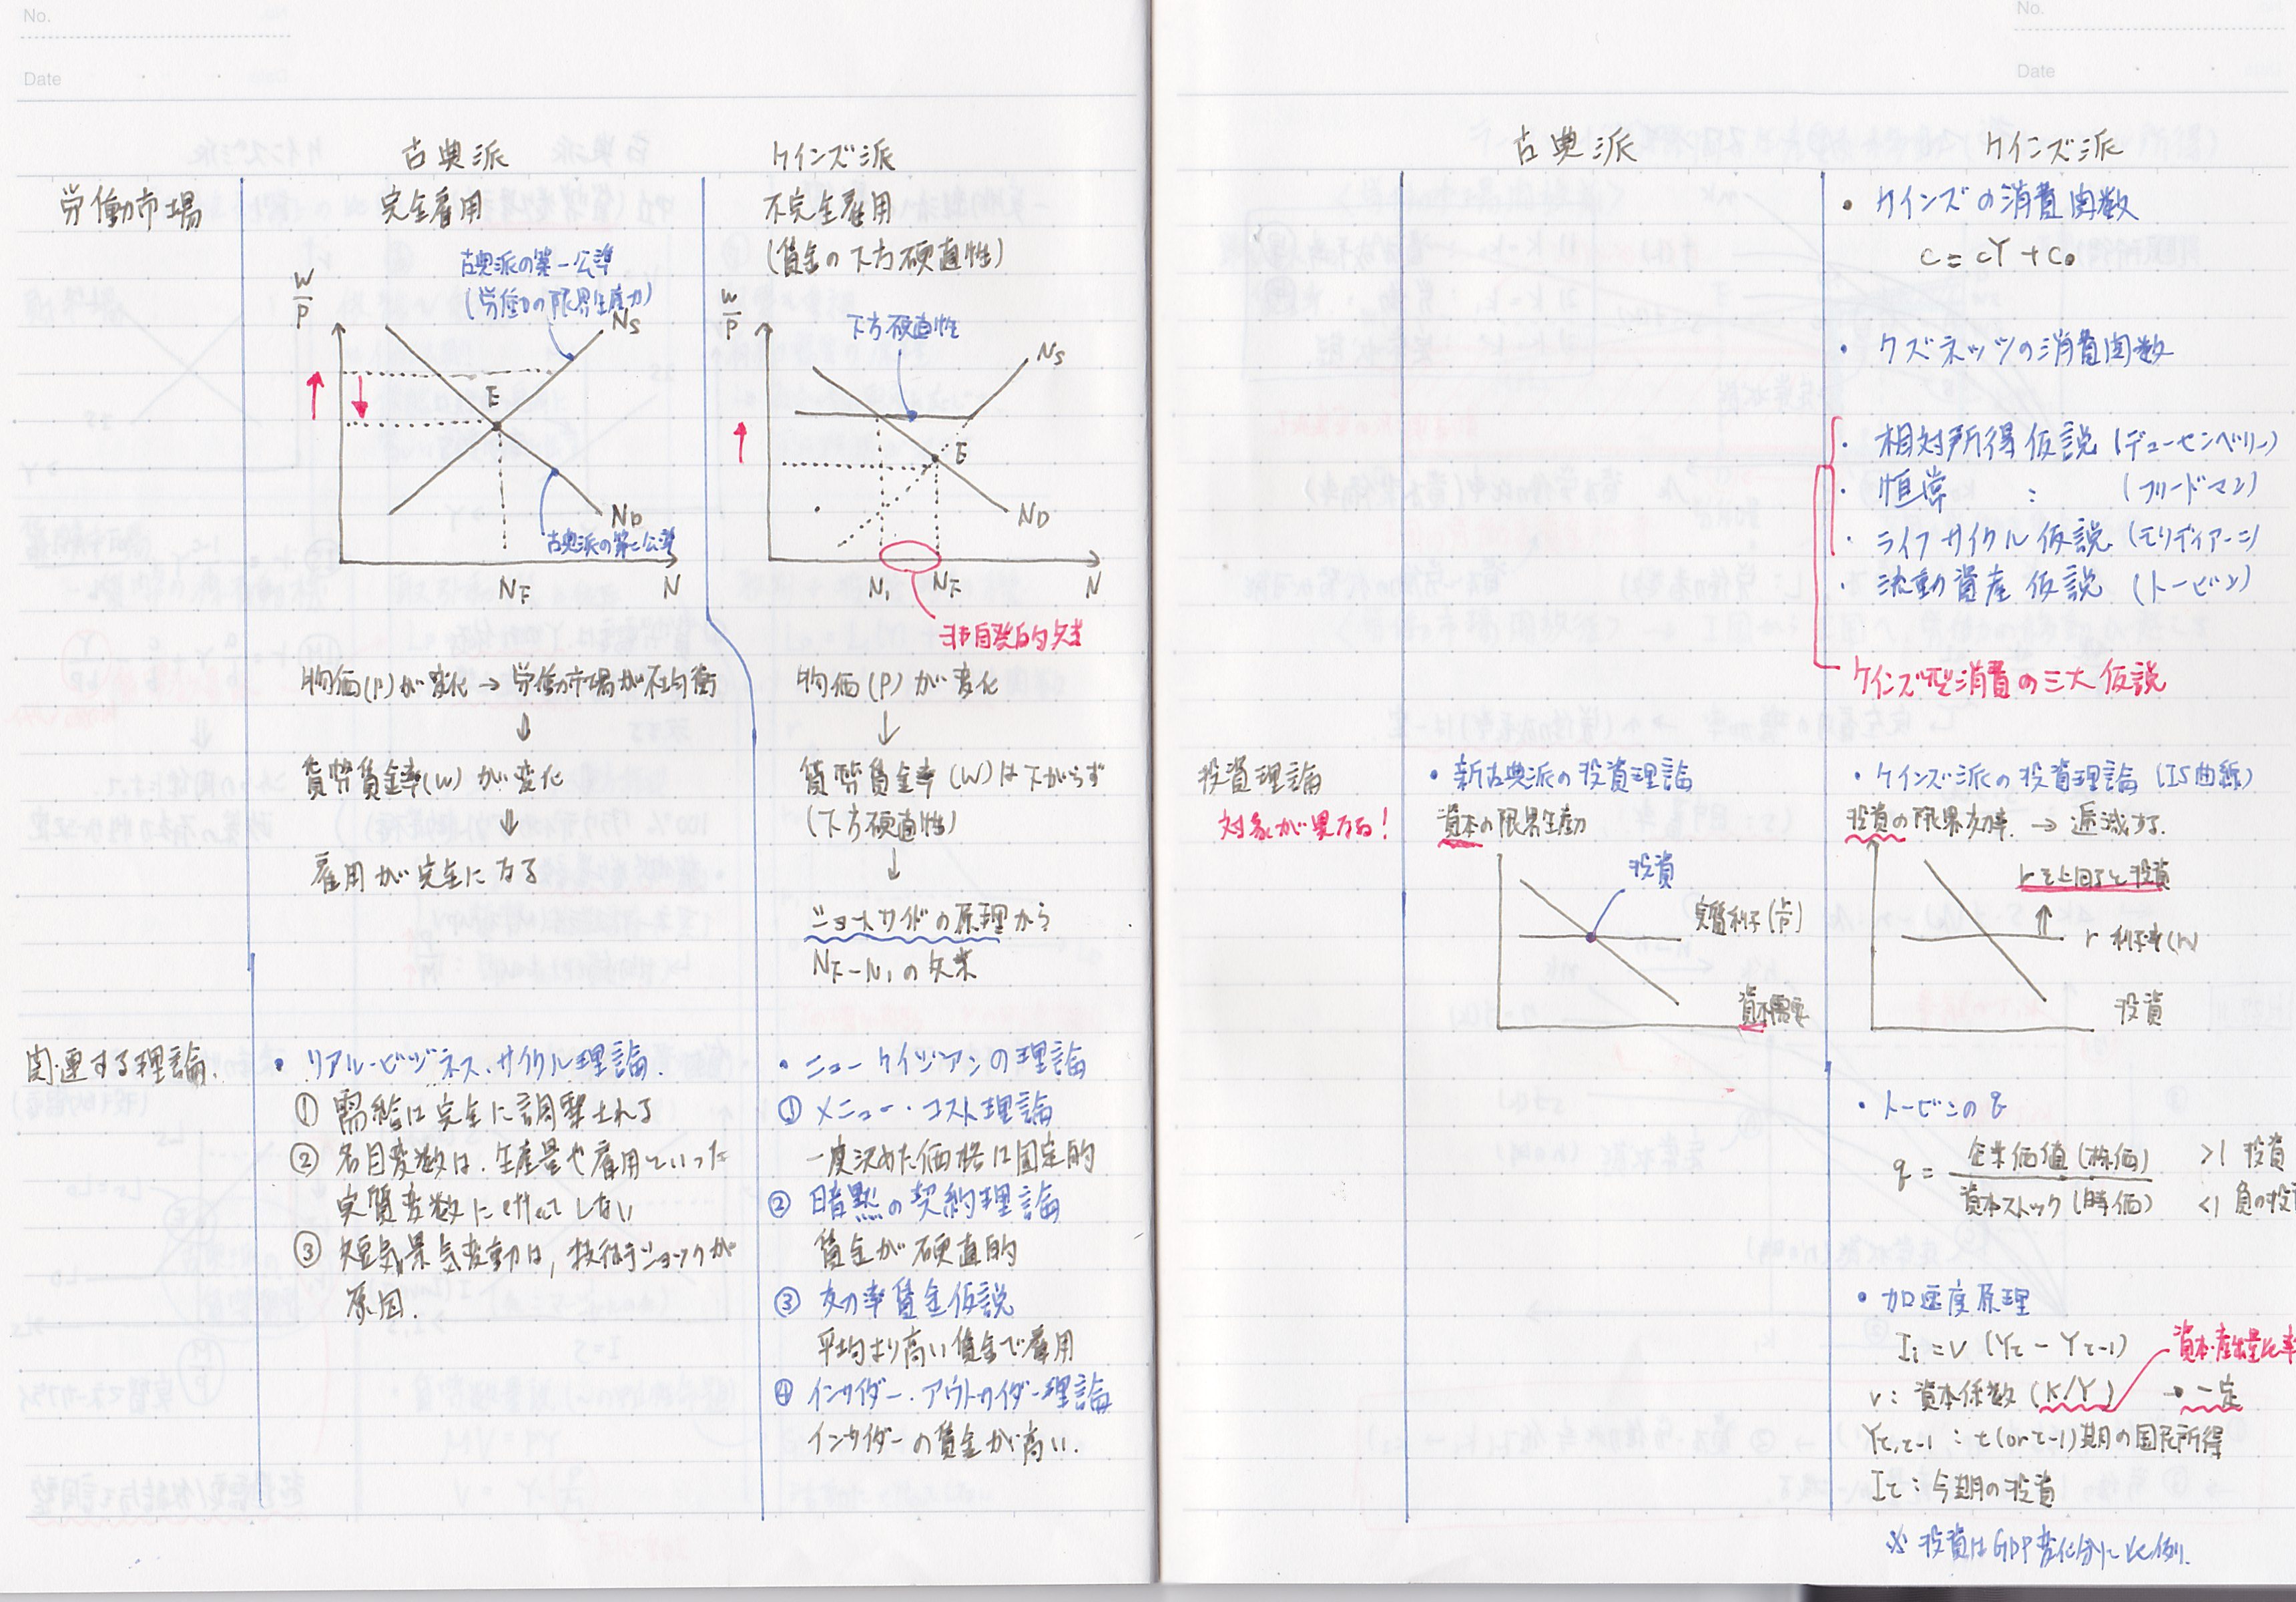 No.
Date
古典派
ケインズ派
労働市場
完全雇用
不完全雇用
(賃金の下方硬直性)
古典派の第一公準
(労働の限界生産力)
W
P
NS
E
ND
古典派の第二公準
NF
N
W
P
下方硬直性
NS
E
ND
N1
NF
N
非自発的失業
物価(P)が変化→労働市場が不均衡
↓
貨幣賃金率(W)が変化
↓
雇用が完全になる
物価(P)が変化
↓
貨幣賃金率(W)は下がらず
(下方硬直性)
↓
ショートサイドの原理から
NF-N1の失業
関連する理論.
・リアル・ビジネス・サイクル理論.
① 需給は完全に調整される
② 名目変数は、生産量や雇用といった
実質変数にeffectしない
③ 短気景気変動は,技術ショックが
原因.
・ニューケインジアンの理論
① メニュー・コスト理論
一度決めた価格は固定的
② 暗黙の契約理論
賃金が硬直的
③ 効率賃金仮説
平均より高い賃金で雇用
④ インサイダー・アウトサイダー理論
インサイダーの賃金が高い.
No.
Date
古典派
ケインズ派
・ケインズの消費関数
C=cY+C0
・クズネッツの消費関数
・相対所得仮説(デューセンベリー)
・恒常 : (フリードマン)
・ライフサイクル仮説.(モリディアーニ)
・流動資産仮説(トービン)
ケインズ型消費の三大仮説
投資理論
対象が異なる!
・新古典派の投資理論
資本の限界生産力
投資
実質利子(倍)
資本需要
・ケインズ派の投資理論(IS曲線)
投資の限界効率.→逓減する.
rを上回ると投資
r 利子率(r)
投資
・トービンのq
q= 企業価値(株価) >1 投資
資本ストック(時価) <1 負の投
・加速度原理
It=v(Yt-Yt-1)
資本・産出量比率
v:資本係数(K/Y) →一定
Yt,t-1:t(or t-1)期の国民所得
It:今期の投資
※投資はGDP変化分に比例.